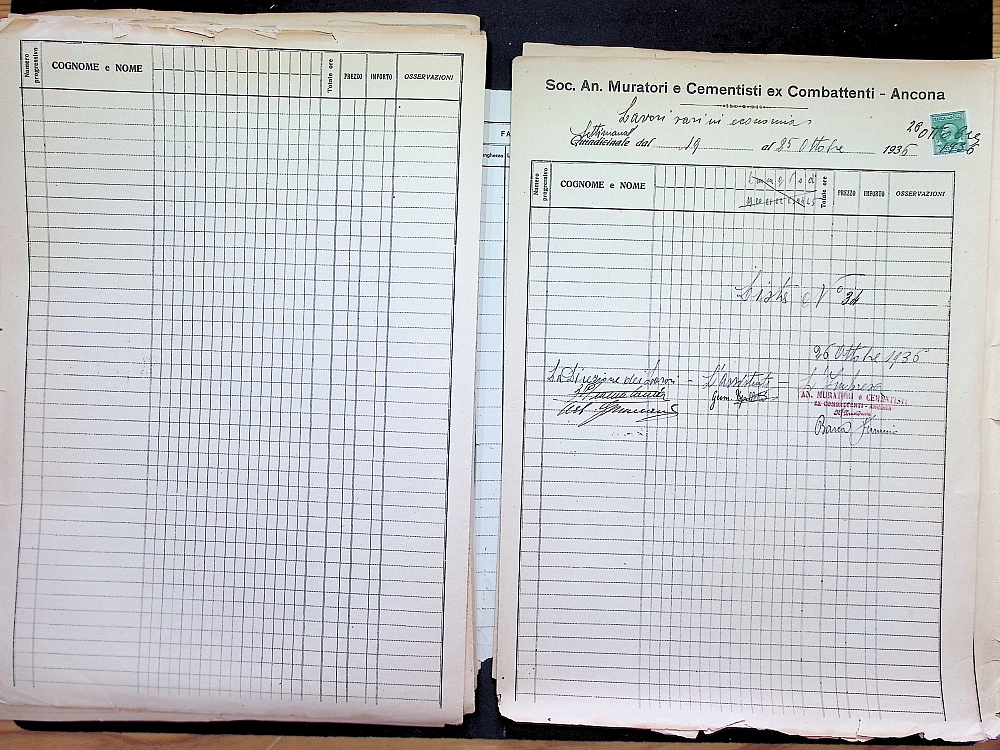 Numero progressivo COGNOME e NOME Totale ore PREZZO IMPORTO OSSERVAZIONI
FA
Soc. An. Muratori e Cementisti ex Combattenti - Ancona
Lavori vari in economia
28 Ottobre 1935
Settimanal
Quindicinale dal 19 al 25 Ottobre 1935
Numero progressivo COGNOME e NOME Totale ore PREZZO IMPORTO OSSERVAZIONI
Lista N° 34
26 Ottobre 1935
La Direzione dei Lavori - L'assistente - L'Impresa
Geom.
AN. MURATORI e CEMENTISTI
EX COMBATTENTI - ANCONA